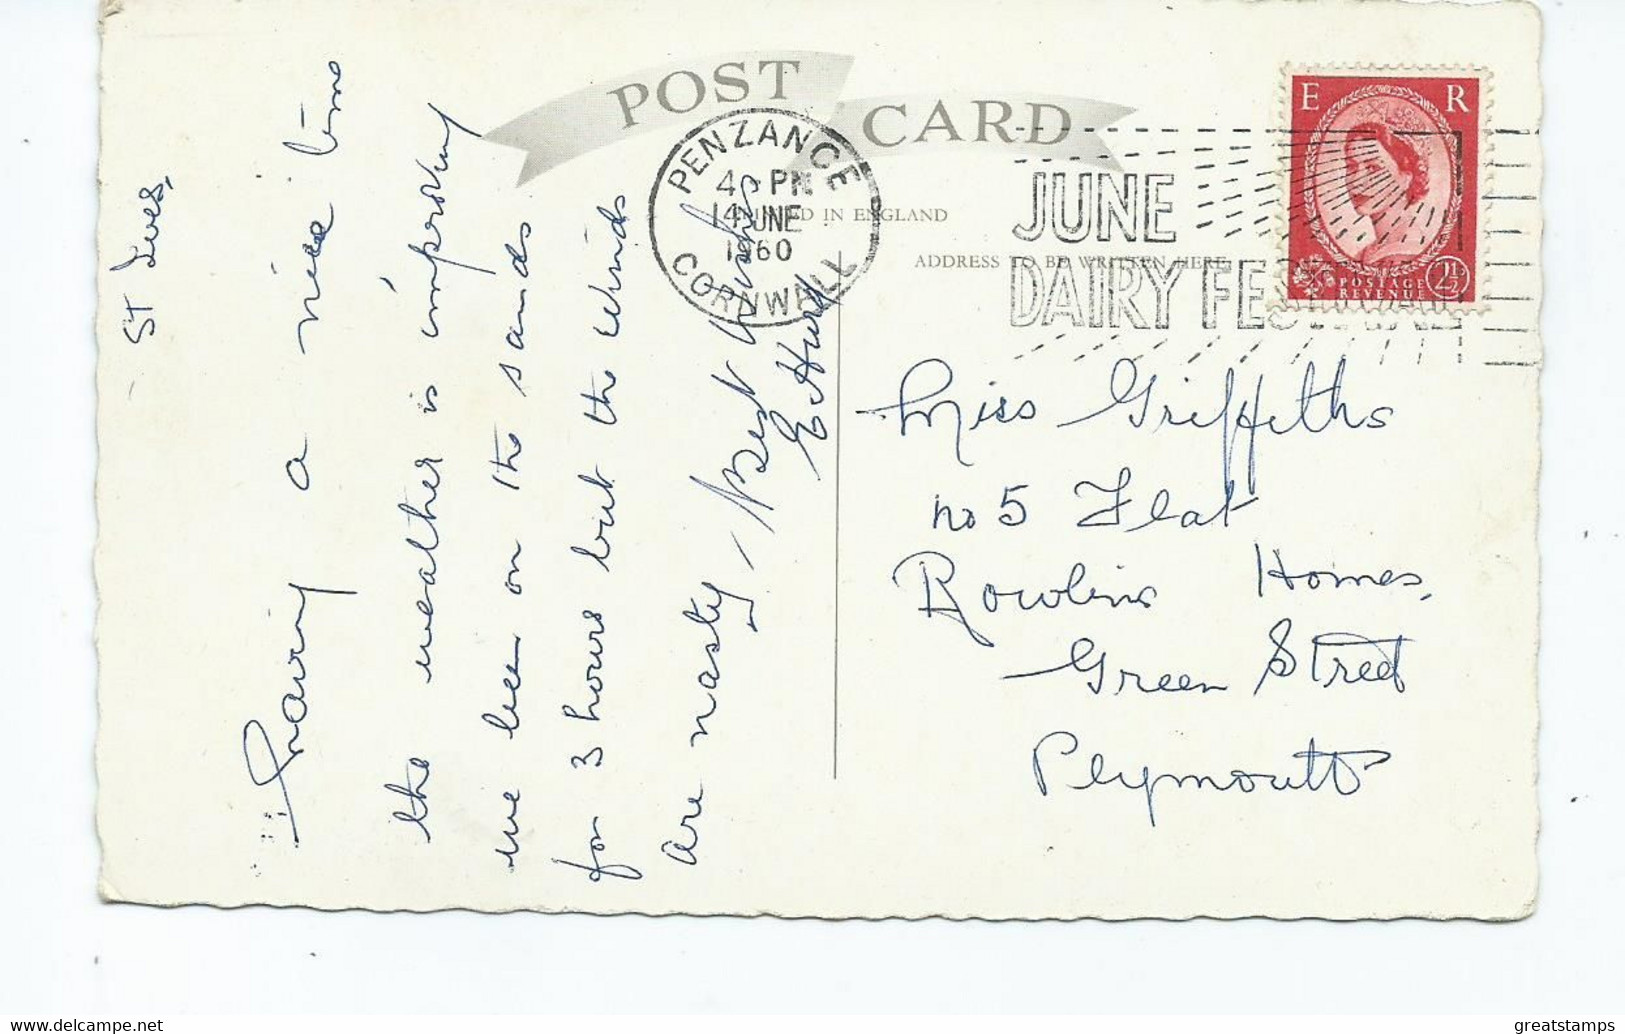 POST CARD
PRINTED IN ENGLAND
ADDRESS TO BE WRITTEN HERE
PENZANCE
4 PM
14 JUNE
1960
CORNWALL
JUNE
DAIRY FESTIVAL
E R
POSTAGE
REVENUE
2½
St Ives,
Having a nice time
the weather is improving
we been on the sands
for 3 hours but the winds
are nasty Best Wishes
E Hurd
Miss Griffiths
no 5 Flat
Rowlins Homes,
Green Street
Plymouth
greatstamps